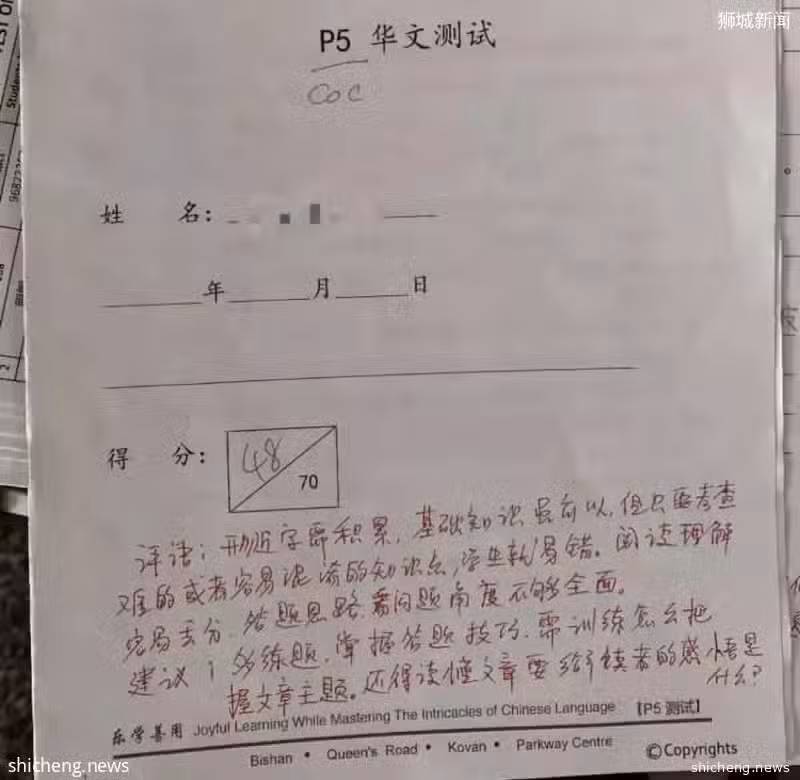 狮城新闻
P5 华文测试
COC
姓 名：
年 月 日
得 分：
48
70
评语：形近字需积累，基础知识虽可以，但只要考查
难的或者容易混淆的知识点，学生就易错。阅读理解
容易丢分，答题思路，看问题角度不够全面。
建议：多练题，掌握答题技巧，需训练怎么把
握文章主题。还得读懂文章要给予读者的感悟是
什么？
乐学善用 Joyful Learning While Mastering The Intricacies of Chinese Language 【P5 测试】
Bishan • Queen's Road • Kovan • Parkway Centre
©Copyrights
shicheng.news
shicheng.news